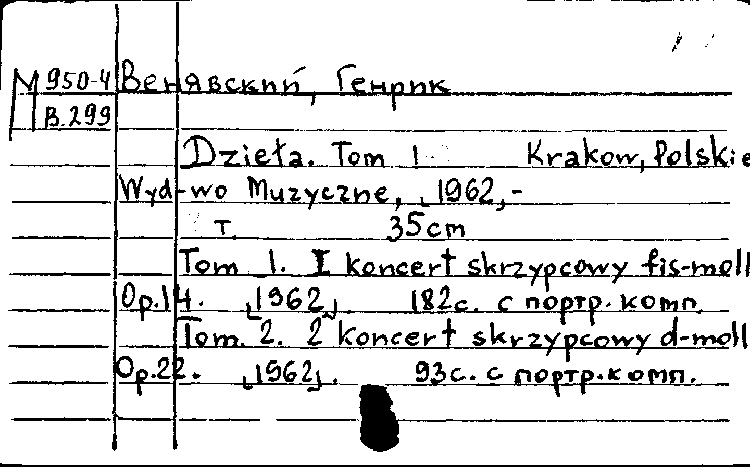 М 950-4 Венявский, Генрик
В.299
Dzieła. Tom 1 Krakow, Polskie
Wyd-wo Muzyczne, [1962,-
т. 35cm
Tom 1. I koncert skrzypcowy fis-moll
Op.14. [1962]. 182с. с портр. комп.
Tom. 2. 2 koncert skrzypcowy d-moll
Op.22. [1962]. 93с. с портр. комп.